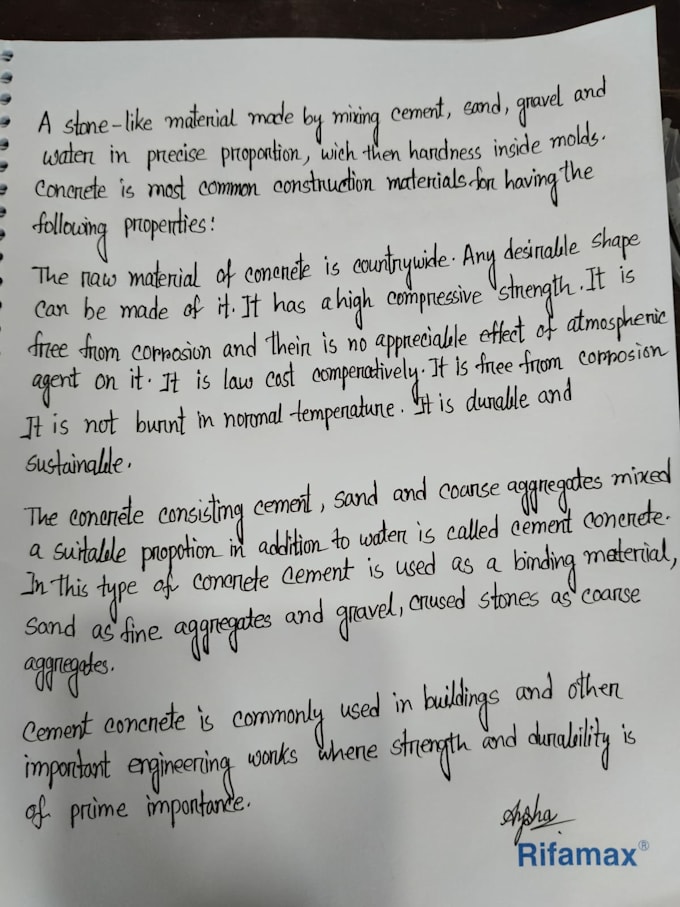 A stone-like material made by mixing cement, sand, gravel and
water in precise proportion, wich then hardness inside molds.
Concrete is most common construction materials for having the
following properties:
The raw material of concrete is countrywide. Any desirable shape
can be made of it. It has a high compressive strength. It is
free from corrosion and their is no appreciable effect of atmospheric
agent on it. It is law cost comperatively. It is free from corrosion
It is not burnt in noromal temperature. It is durable and
sustainable.
The concrete consisting cement, sand and coarse aggregates mixed
a suitable propotion in addition to water is called cement concrete.
In this type of concrete cement is used as a binding meterial,
sand as fine aggregates and gravel, crused stones as coarse
aggregates.
Cement concrete is commonly used in buildings and other
important engineering works where strength and durability is
of prime importance.
Aysha
Rifamax®